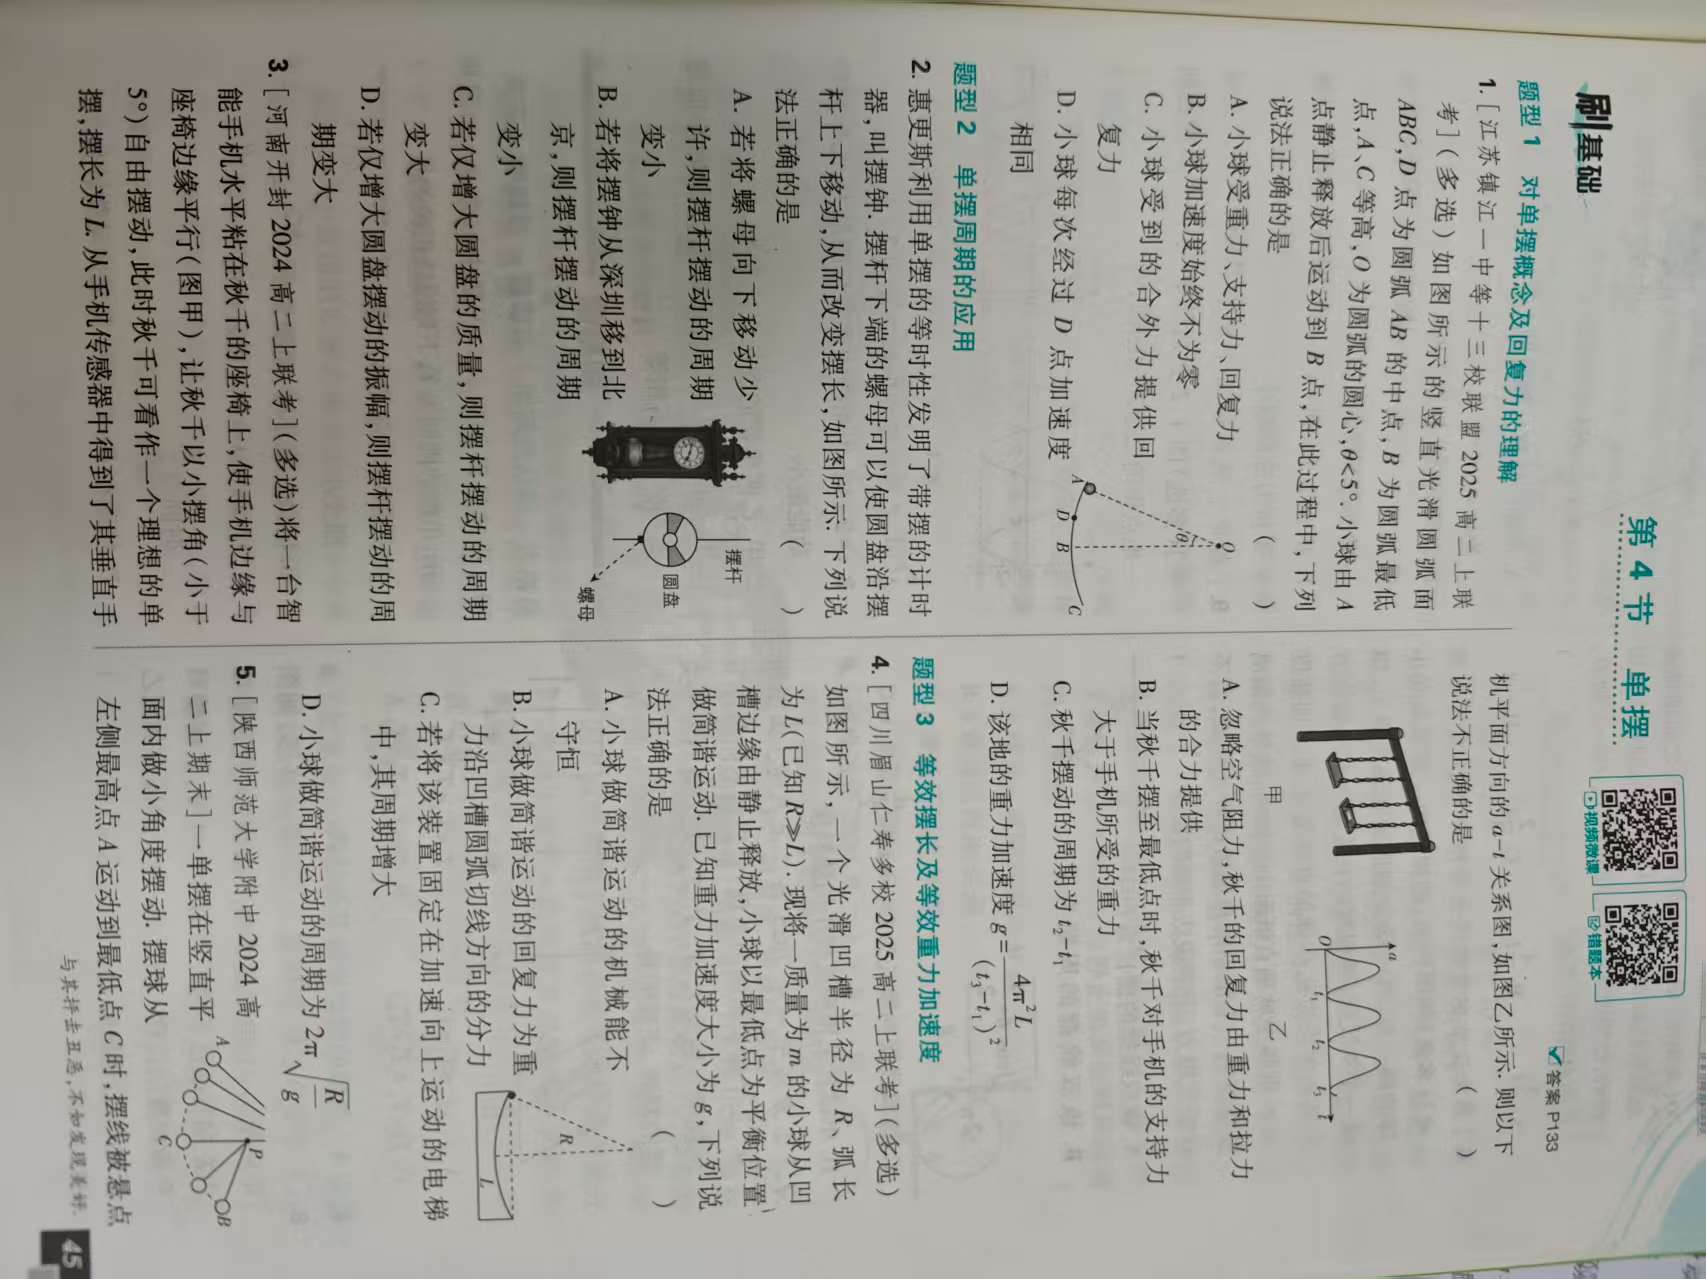 第4节 单摆
视频微课
错题本
刷基础
答案 P133
题型1 对单摆概念及回复力的理解
1. [江苏镇江一中等十三校联盟 2025 高三上联
考](多选)如图所示的竖直光滑圆弧面
ABC,D 点为圆弧 AB 的中点,B 为圆弧最低
点,A、C 等高,O 为圆弧的圆心,θ<5°. 小球由 A
点静止释放后运动到 B 点,在此过程中,下列
说法正确的是 ( )
A. 小球受重力、支持力、回复力
B. 小球加速度始终不为零
C. 小球受到的合外力提供回
复力
D. 小球每次经过 D 点加速度
相同
O
θ
A
D
B
C
题型2 单摆周期的应用
2. 惠更斯利用单摆的等时性发明了带摆的计时
器,叫摆钟. 摆杆下端的螺母可以使圆盘沿摆
杆上下移动,从而改变摆长,如图所示. 下列说
法正确的是 ( )
A. 若将螺母向下移动少
许,则摆杆摆动的周期
变小
B. 若将摆钟从深圳移到北
京,则摆杆摆动的周期
变小
摆杆
圆盘
螺母
C. 若仅增大圆盘的质量,则摆杆摆动的周期
变大
D. 若仅增大圆盘摆动的振幅,则摆杆摆动的周
期变大
3. [河南开封 2024 高二上联考](多选)将一台智
能手机水平粘在秋千的座椅上,使手机边缘与
座椅边缘平行(图甲),让秋千以小摆角(小于
5°)自由摆动,此时秋千可看作一个理想的单
摆,摆长为 L. 从手机传感器中得到了其垂直手
机平面方向的 a-t 关系图,如图乙所示. 则以下
说法不正确的是 ( )
甲
a
O
t₁
t₂
t₃
t
乙
A. 忽略空气阻力,秋千的回复力由重力和拉力
的合力提供
B. 当秋千摆至最低点时,秋千对手机的支持力
大于手机所受的重力
C. 秋千摆动的周期为 t₂-t₁
D. 该地的重力加速度 g=4π²L/(t₃-t₁)²
题型3 等效摆长及等效重力加速度
4. [四川眉山仁寿多校 2025 高二上联考](多选)
如图所示,一个光滑凹槽半径为 R、弧长
为 L(已知 R≫L). 现将一质量为 m 的小球从凹
槽边缘由静止释放,小球以最低点为平衡位置
做简谐运动. 已知重力加速度大小为 g,下列说
法正确的是 ( )
A. 小球做简谐运动的机械能不
守恒
B. 小球做简谐运动的回复力为重
力沿凹槽圆弧切线方向的分力
R
L
C. 若将该装置固定在加速向上运动的电梯
中,其周期增大
D. 小球做简谐运动的周期为 2π√(R/g)
5. [陕西师范大学附中 2024 高
二上期末]一单摆在竖直平
面内做小角度摆动. 摆球从
左侧最高点 A 运动到最低点 C 时,摆线被悬点
A
P
C
B
与其抨击丑恶,不如发现美好.
45